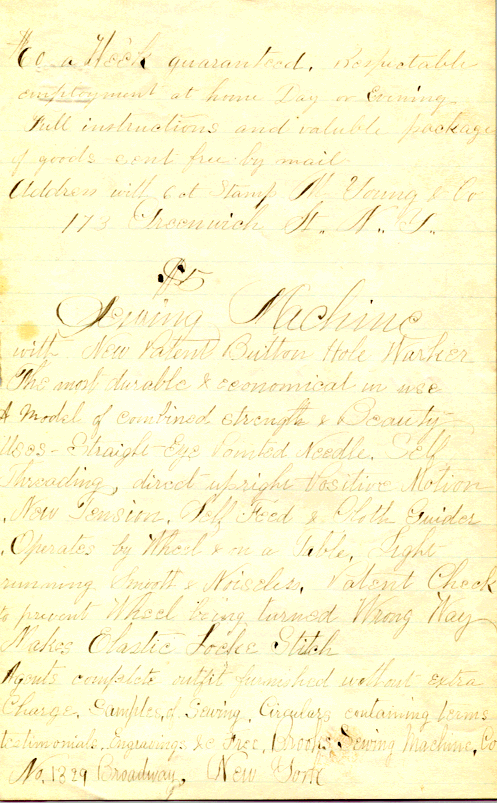 $60 a Week guaranteed. Respectable
employment at home Day or Evening
Full instructions and valuable package
of goods sent free by mail
Address with 6 ct Stamp M. Young & Co
173 Greenwich St., N. Y.
$5
Sewing Machine
with New Patent Button Hole Worker
The most durable & economical in use
A Model of combined strength & Beauty
Uses - Straight - Eye Pointed Needle. Self
Threading, direct upright Positive Motion
New Tension. Self Feed & Cloth Guider
Operates by Wheel & on a Table. Light
running Smooth & Noiseless, Patent Check
to prevent Wheel being turned Wrong Way
Makes Elastic Locke Stitch
Agents complete outfit furnished without extra
Charge. Samples of Sewing, Circulars containing terms
testimonials, Engravings &c Free, Brooks Sewing Machine, Co
No. 1329 Broadway, New York